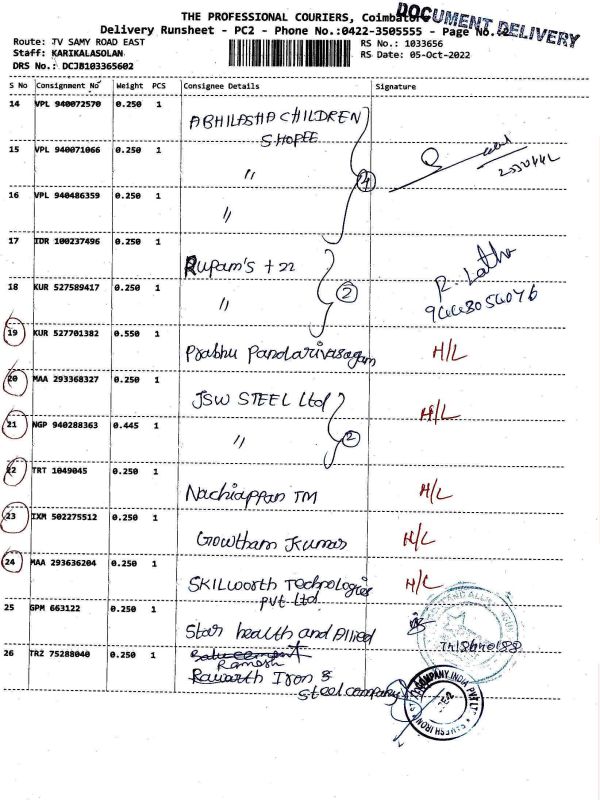 THE PROFESSIONAL COURIERS, Coimbatore
DOCUMENT DELIVERY
Delivery Runsheet - PC2 - Phone No.:0422-3505555 - Page No.
Route: TV SAMY ROAD EAST
RS No.: 1033656
Staff: KARIKALASOLAN
RS Date: 05-Oct-2022
DRS No.: DCJB103365602
S No Consignment No Weight PCS Consignee Details Signature
14 VPL 940072570 0.250 1
ABHILASHA CHILDREN
SHOPEE
15 VPL 940071066 0.250 1
"
16 VPL 940486359 0.250 1
"
4
17 IDR 100237496 0.250 1
Rupam's + 22
18 KUR 527589417 0.250 1
"
2
R. Latha
19 KUR 527701382 0.550 1
Prabhu Pandarivasagam H/L
20 MAA 293368327 0.250 1
JSW STEEL Ltd H/L
21 NGP 940288363 0.445 1
"
2
22 TRT 1049045 0.250 1
Nachiappan TM H/L
23 IXM 502275512 0.250 1
Gowtham Kumar H/L
24 MAA 293636204 0.250 1
SKILWORTH Technologies H/L
Pvt Ltd
25 GPM 663122 0.250 1
Star health and Allied
26 TRZ 75288040 0.250 1
Ramesh
Iron &
Steel company